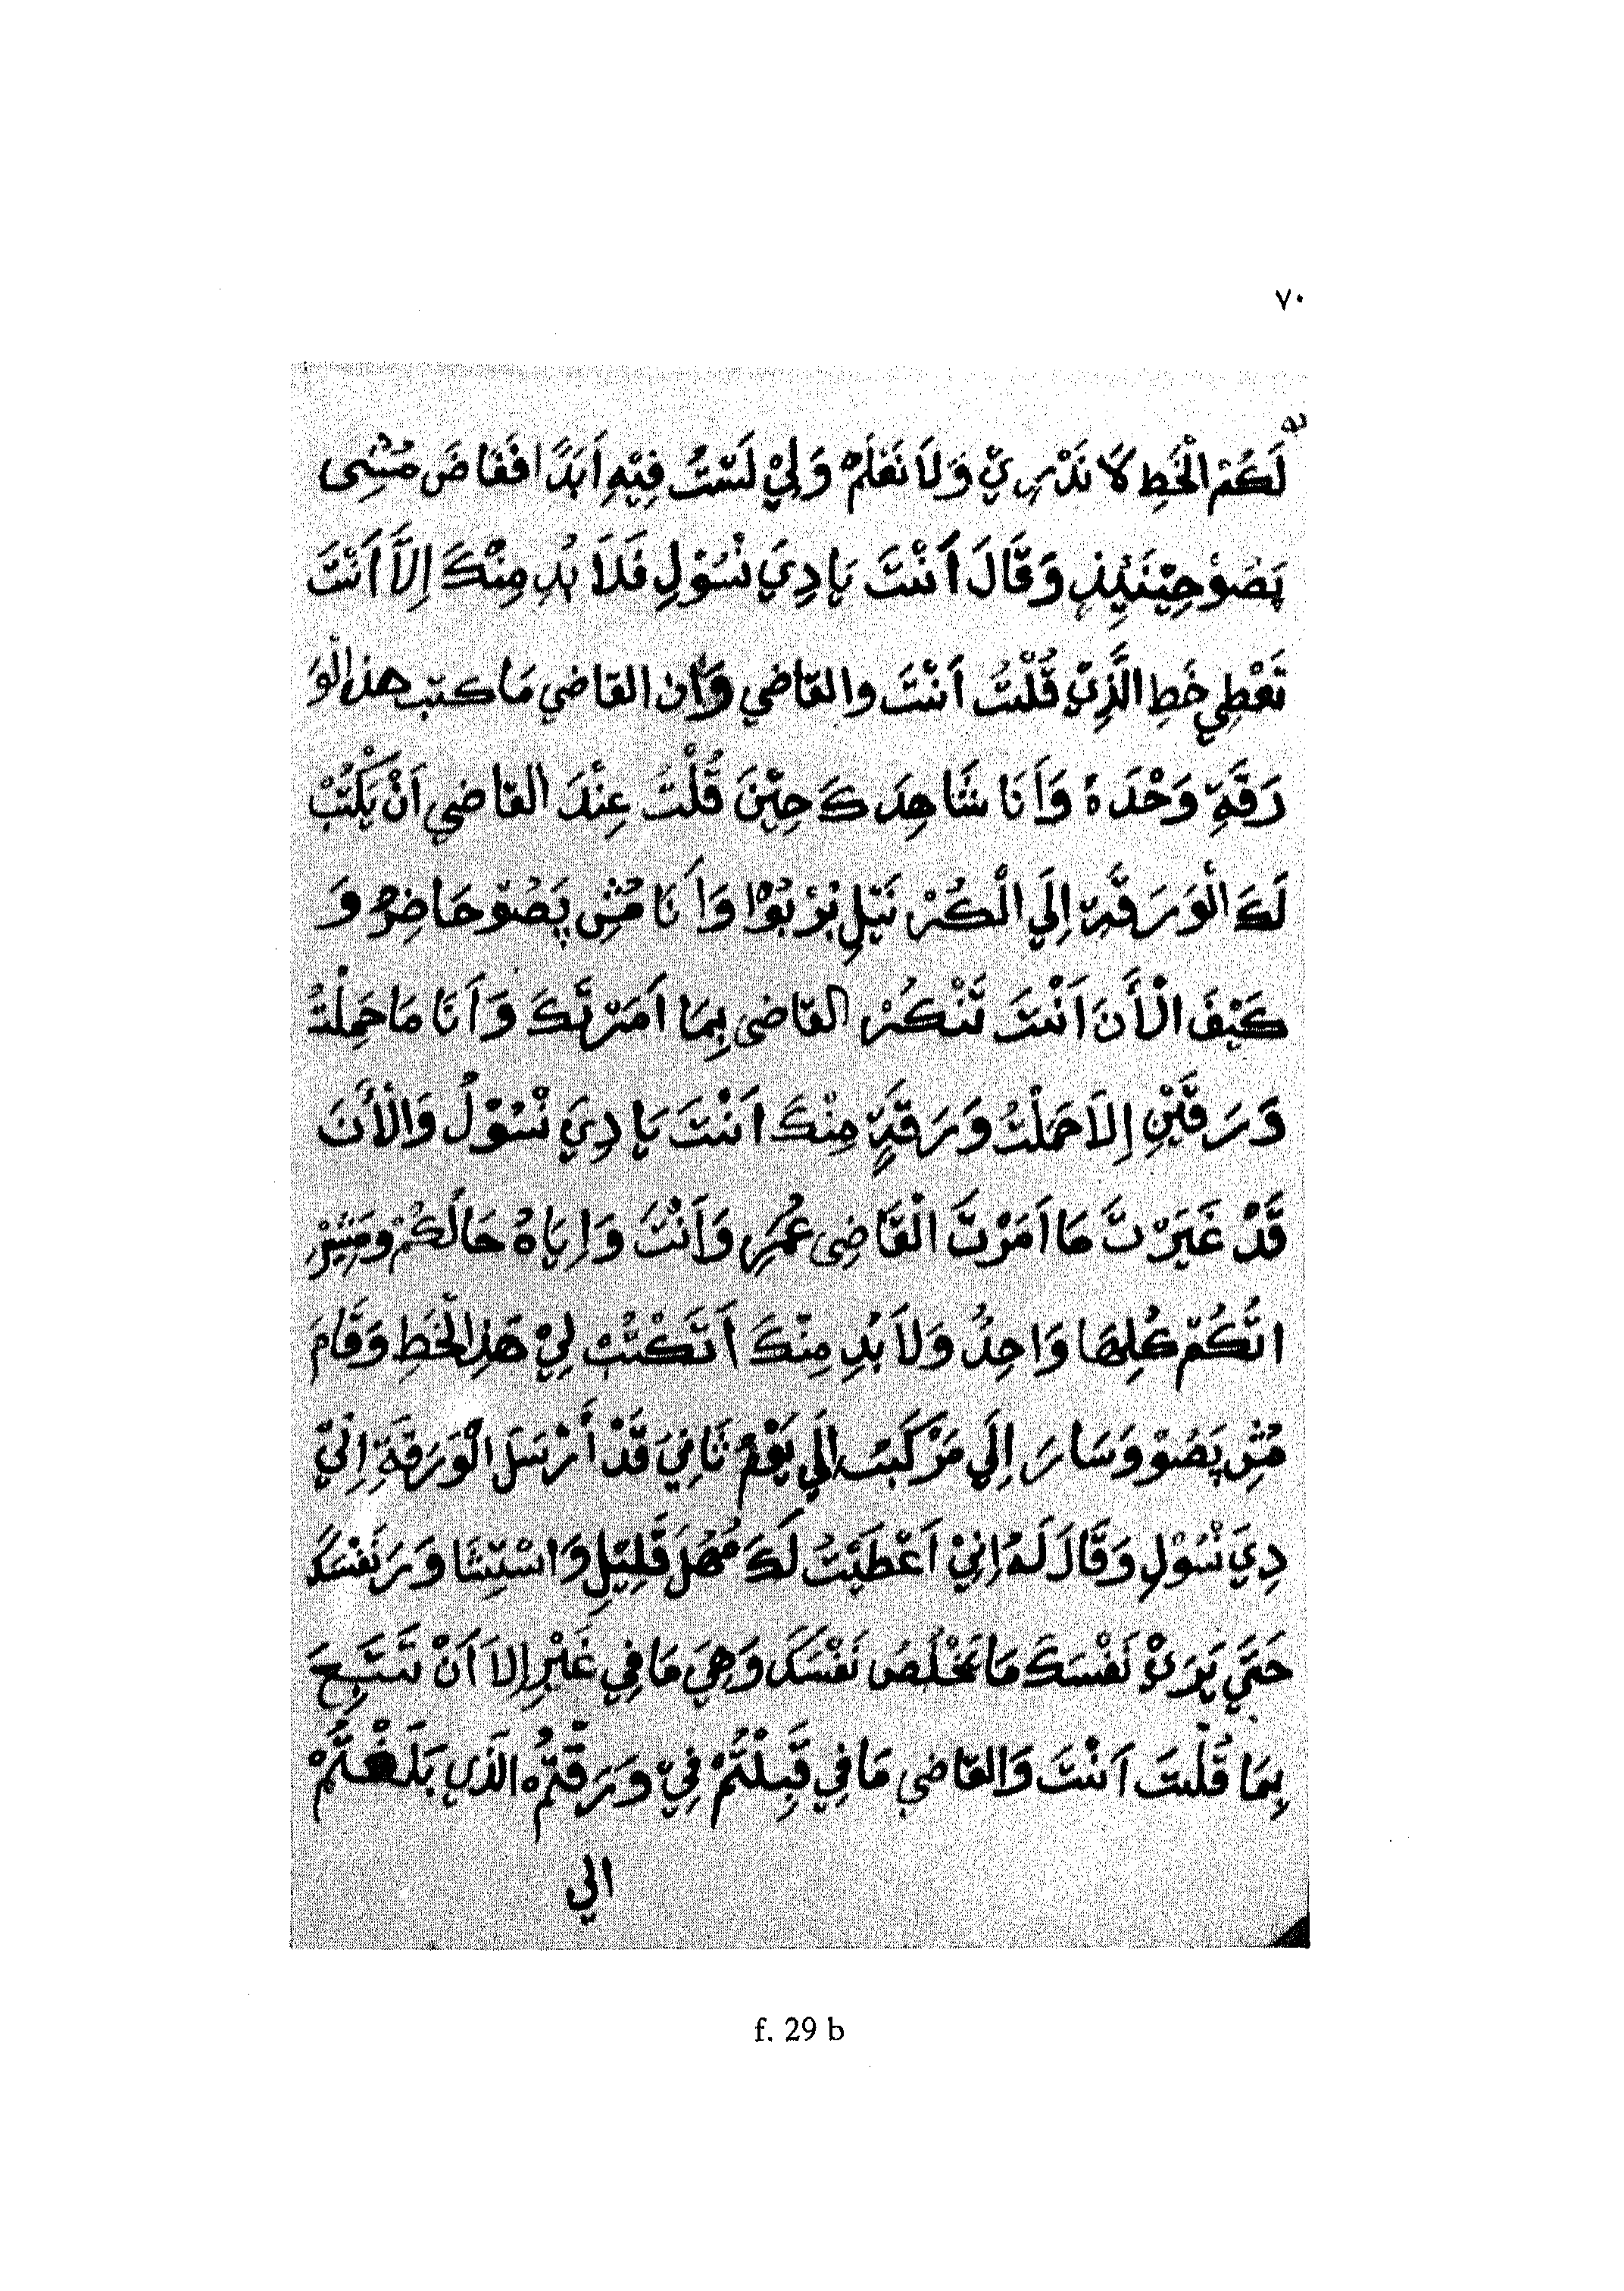 ٧٠
لَكُمْ الْخَطِ لَا نَدْرِيْ وَلَا نَعْلَمْ وَلِيْ لَسْتُ فِيْهِ اَبَدًا فَقَاضَ مُشِى
پَصُوْ حِيْنَئِذٍ وَقَالَ اَنْتَ يَا دِيَ نْسُوْلِ فَلَا بُدِ مِنْكَ إِلَّا أَنْتَ
تَعْطِي خَطِ الَّذِيْ قُلْتُ اَنْتَ والقاضي وَإن القاضي مَا كتب هذ الْوَ
رَقَةِ وَحْدَهُ وَاَنَا شَاهِدَكَ حِيْنَ قُلْتُ عِنْدَ القاضي اَنْ يَكْتُبْ
لَكَ الْوَرَقَةِ إِلَي الْكُرْنَيْلِ بْرْبُوْا وَاَنَا مُشِ پَصُوْ حَاضِرْ وَ
كَيْفَ الْأَنَ اَنْتَ تَنْكُرْ القاضى بِمَا اَمَرْتَكَ وَاَنَا مَا حَمِلْتُ
وَرَقَتَيْنِ إِلَا حَمَلْتُ وَرَقَةٍ مِنْكَ اَنْتَ يَا دِيَ نْسُوْلُ وَالْأَنَ
قَدْ غَيَرْتَ مَا اَمَرْتَ الْقَاضِى عُمَرِ وَاَنْتَ وَاِيَاهُ حَالَكُمْ وَمَشِيْرِ
اتَّكُمْ كُلِهَا وَاحِدُ وَلَا بُدِ مِنْكَ اَتَكْتُبْ لِيْ هَذِ الْخَطِ وَقَامَ
مُشِ پَصُوْ وَسَارَ إِلَي مَرْكَبُ إلَي يَوْمُ ثَانِيَ قَدْ أَرْسَلَ الْوَرَقَةِ إِلَيْ
دِيَ نْسُوْلِ وَقَالَ لَهُ اِنِيْ اَعْطَيْتُ لَكَ مُهْلَ قَلِيْلِ وَاسْتِشَا وَرَ نَفْسَكَ
حَتَّي يَرَيْ نَفْسَكَ مَا تَخْلُصُ نَفْسَكَ وَهِيَ مَا فِي غَيْرِ إلَا اَنْ تَتَّبِحَ
بِمَا قُلْتَ اَنْتَ وَالقاضي مَا فِي قَبِلْتُمْ فِيْ وَرَقَتُمْ الَذي بَلَغْتُمْ
الي
f. 29 b